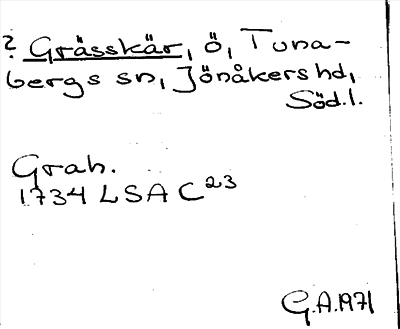 ? Grässkär, ö, Tuna-
bergs sn, Jönåkers hd,
Söd.l.
Grah.
1734 LSA C23
G.A. 1971